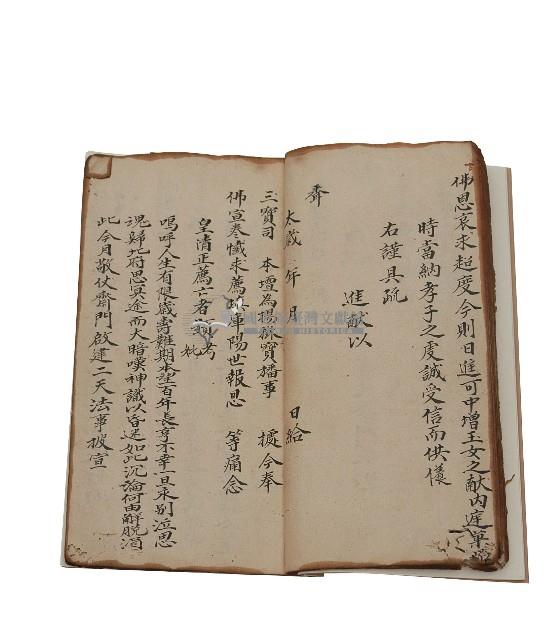 佛恩哀求超度今則日進可中增玉女之献內遲菓
時當納孝子之虔誠受信而供儀
右謹具疏
進献以
齊
大歲 年 月 日給
三寶司 本壇為揚旛寶播事 據今奉
佛宣卷懺求薦 陽世報恩 等痛念
皇清正薦亡者 考 妣
嗚呼人生有限歲壽難期本望百年長享不幸一旦永別泣思
魂歸地府思冥途而大暗嘆神識以昏迷如此沉淪何由解脫涓
此今月敬仗齋門啟建二天法事披宣